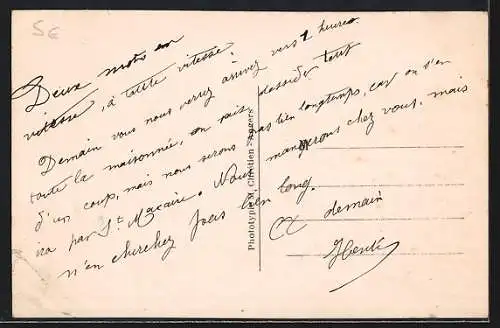 5€
Deux mots en
vitesse, à toute vitesse.
Demain vous nous verrez arriver vers 2 heures
toute la maisonnée, on fait tout
d'un coup, mais nous serons pas bien longtemps, car on s'en
ira par St Macaire. Nous mangerons chez vous, mais
n'en cherchez pas bien long.
A demain
Phototypie M. Chrétien - Angers